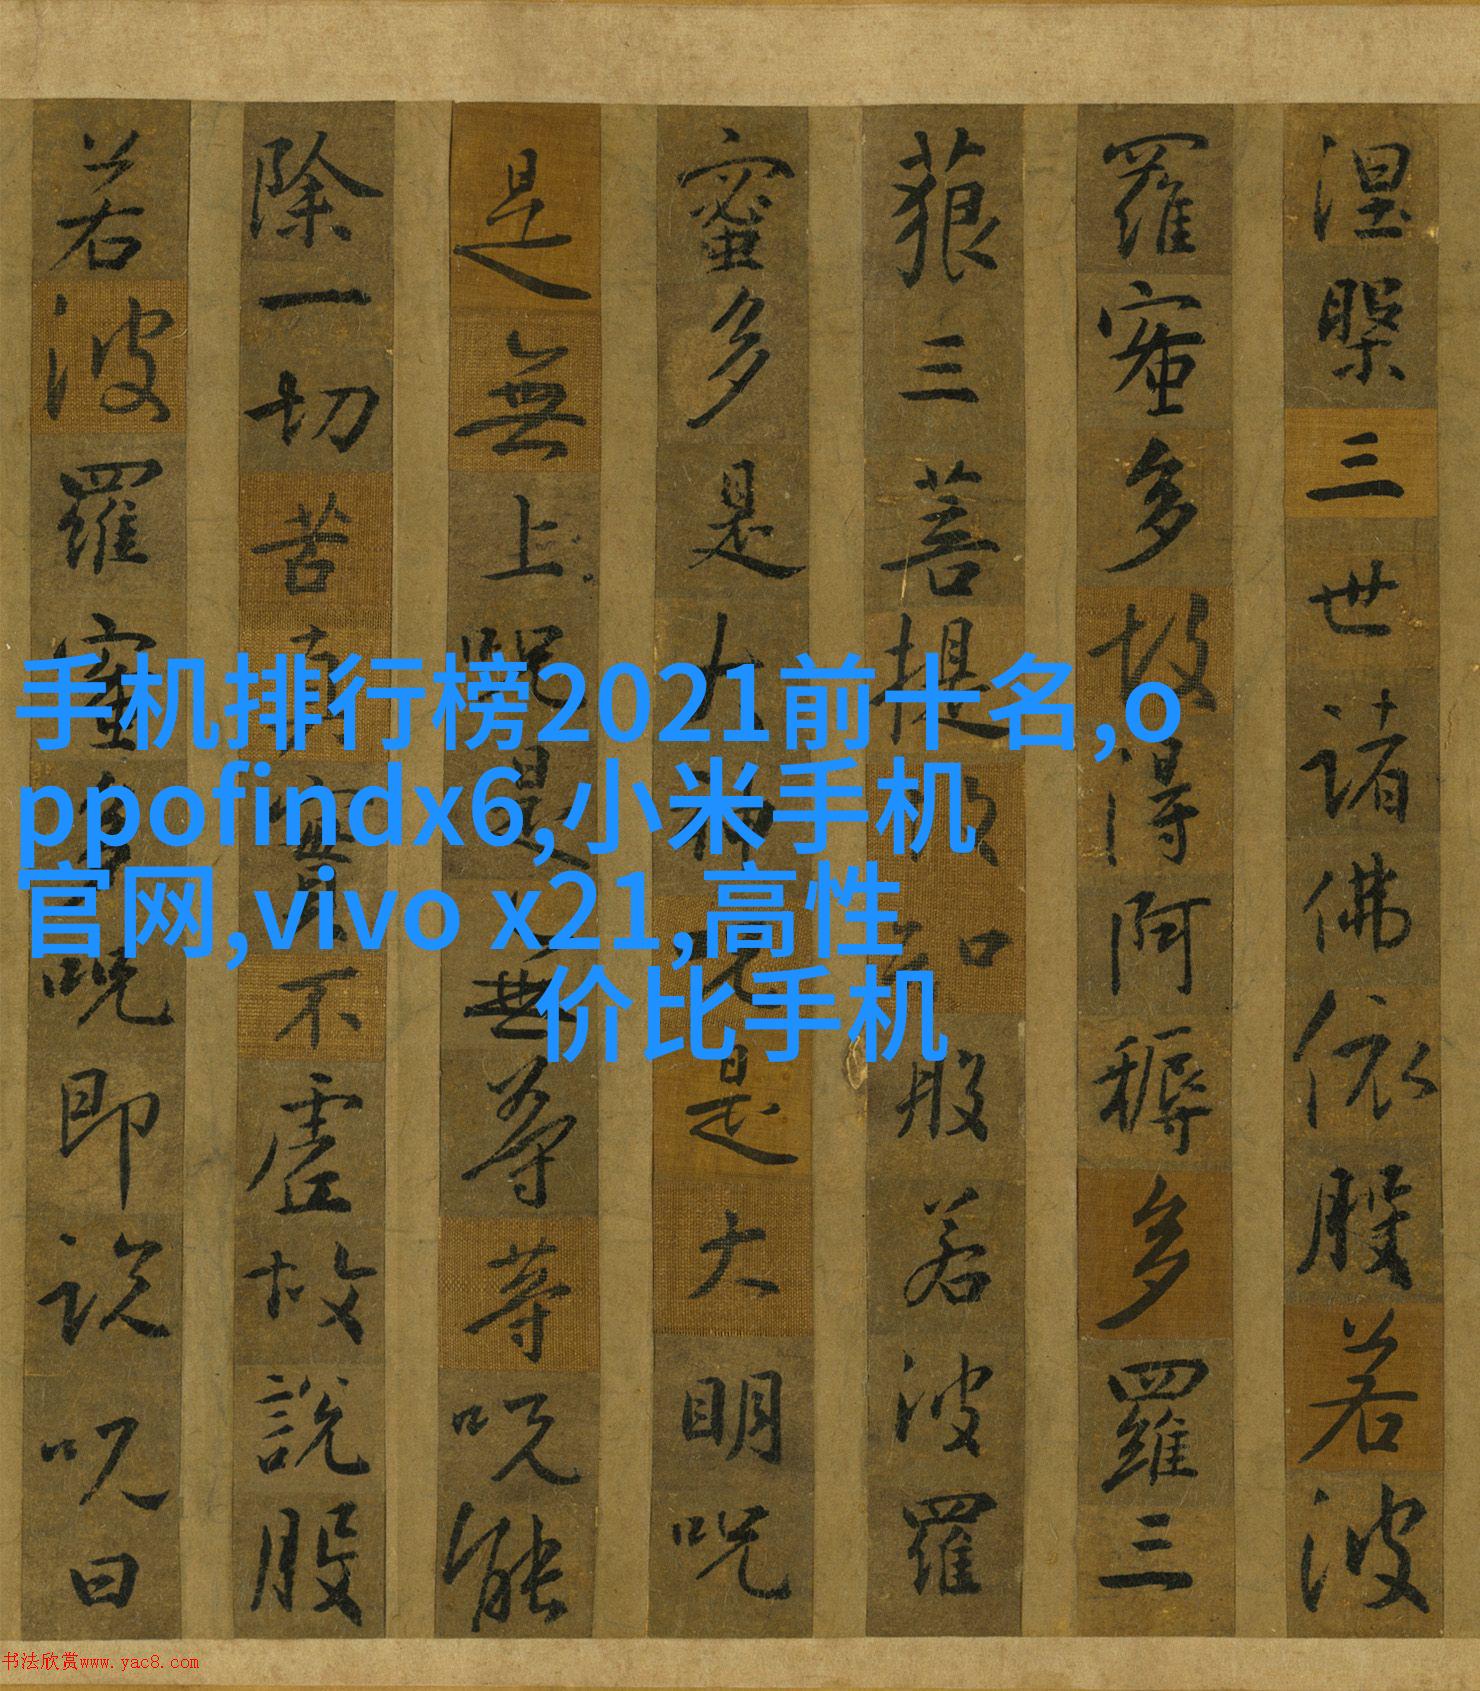 涅槃三世諸佛依般若波
羅蜜多故得阿耨多羅三
藐三菩提故知般若波羅
蜜多是大神呪是大明呪
是無上呪是無等等呪能
除一切苦真實不虛故說般
若波羅蜜多呪即說呪曰
手机排行榜2021前十名,o
ppofindx6,小米手机
官网,vivo x21,高性
价比手机
书法欣赏www.yac8.com